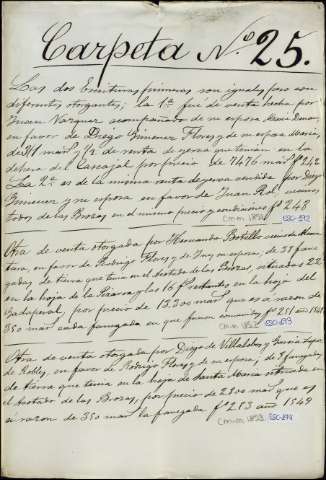 Carpeta Nº 25.
Las dos Escrituras primeras son iguales pero son
diferentes otorgantes; la 1ª fué de venta hecha por
Juan Vazquez acompañado de su esposa
en favor de Diego Gimenez Flores y de su esposa
de 311 mars y 1/2 de renta de yerva que tenian en la
dehesa del Cascajal por precio de 7476 mars fº 242
La 2ª es de la misma renta de yerva vendida por Diego
Gimenez y su esposa en favor de Juan Rol vecinos
todos de las Brozas en el mismo precio y condiciones fº 248
cm.m. 1852 ESC-872
Otra de venta otorgada por Hernando Botello vecino de
en favor de Rodrigo Flores y de Ines su esposa, de 38 fane-
gadas de tierra que tenia en el Acotado de las Brozas, situadas 22
en la hoja de la Piraraza y las 16 restantes en la hoja del
por precio de 13300 mars que es a razon de
350 mars cada fanegada en que fueron fº 251 año 1548
cm.m. 1852 ESC-873
Otra de venta otorgada por Diego de Villalobos y Garcia Lopez
de Robles, en favor de Rodrigo Flores y de su esposa, de 8 fanegadas
de tierra que tenia en la hoja de Santa Marta situada en
el Acotado de las Brozas, por precio de 2800 mars que es
á razon de 350 mars la fanegada fº 253 año 1548
cm.m. 1852 ESC-874